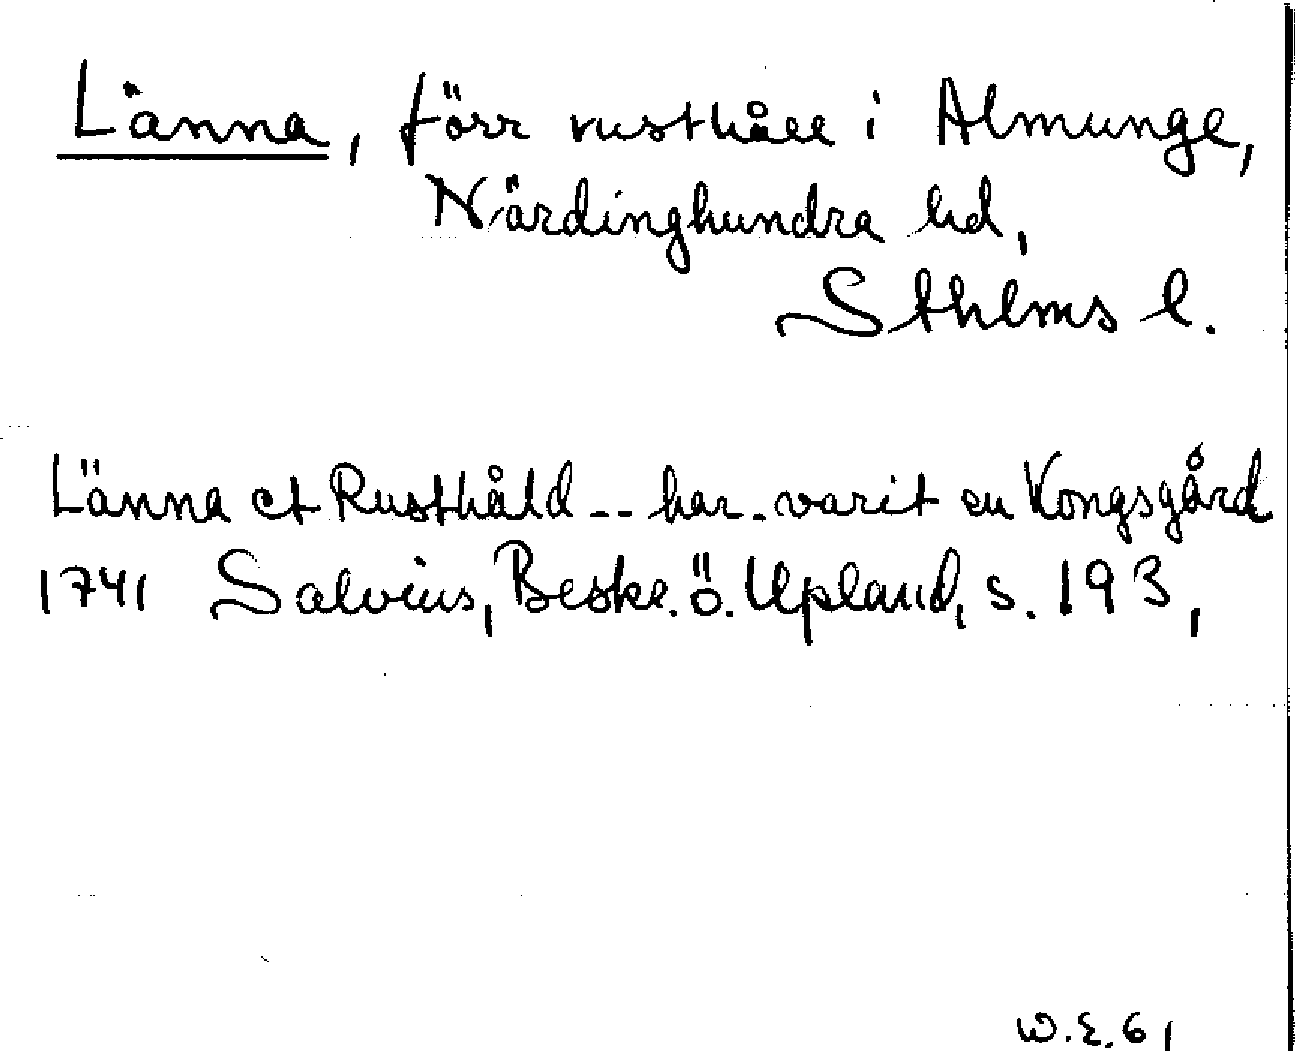 Länna, förr rusthåll i Almunge,
Närdinghundra hd,
Sthlms l.
Länna et Rusthåld -- har - varit en Kongsgård
1741 Salvius, Beskr. ö. Upland, s. 193,
W.E.61